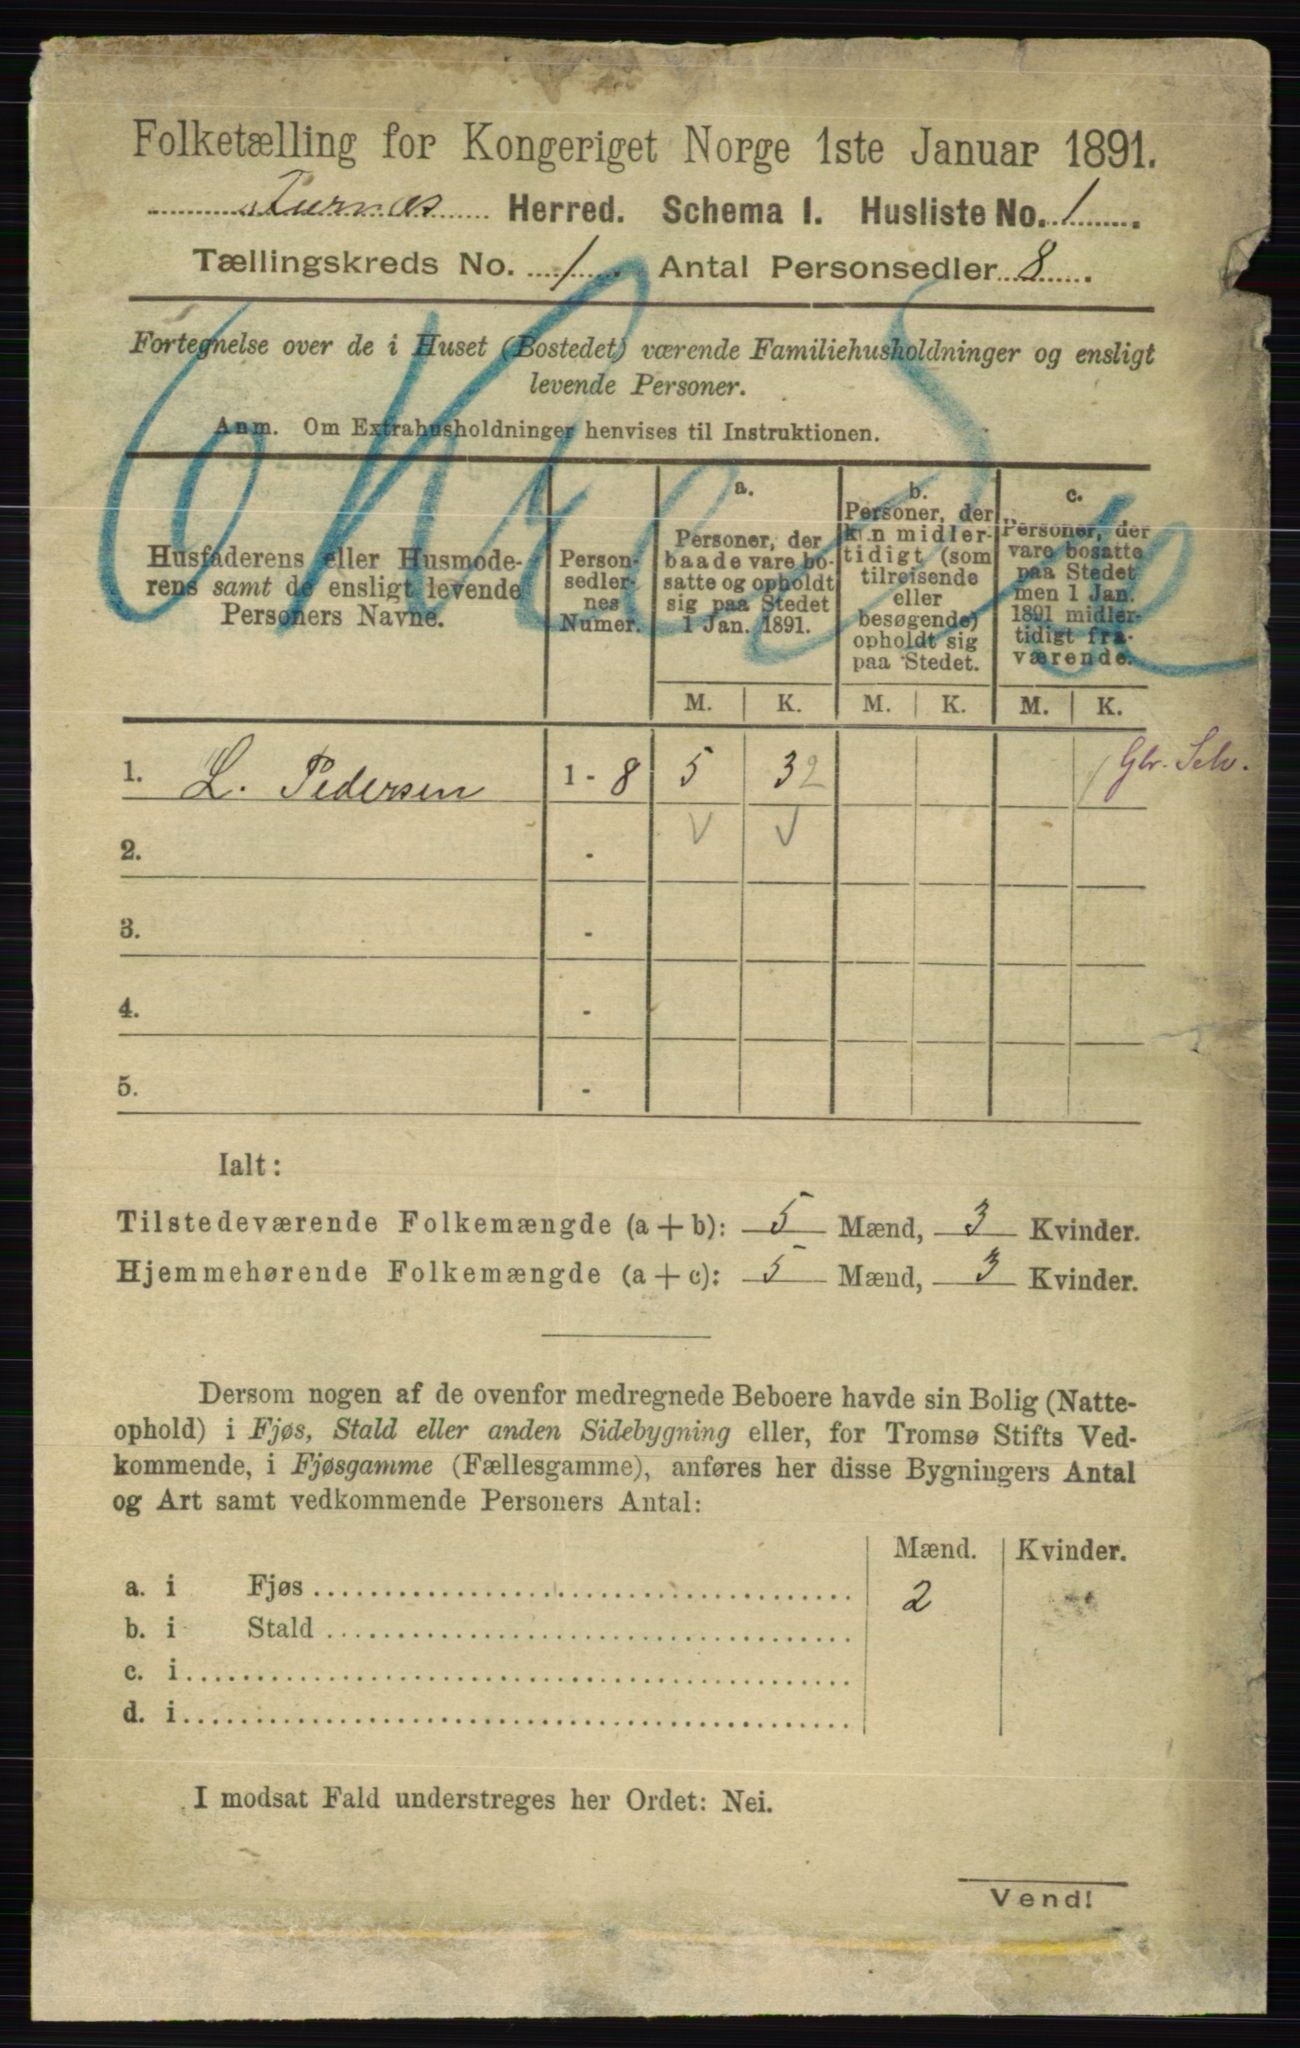 Folketælling for Kongeriget Norge 1ste Januar 1891.
Furnæs Herred. Schema 1. Husliste No. 1
Tællingskreds No. 1. Antal Personsedler 8.
Fortegnelse over de i Huset (Bostedet) værende Familiehusholdninger og ensligt
levende Personer.
Anm. Om Extrahusholdninger henvises til Instruktionen.
Husfaderens eller Husmode-
rens samt de ensligt levende
Personers Navne.
Person-
sedler-
nes
Numer.
a.
Personer, der
baade vare bo-
satte og opholdt
sig paa Stedet
1 Jan. 1891.
b.
Personer, der
kun midler-
tidigt (som
tilreisende
eller
besøgende)
opholdt sig
paa Stedet.
c.
Personer, der
vare bosatte
paa Stedet
men 1 Jan.
1891 midler-
tidigt fra-
værende.
M. K. M. K. M. K.
1. L. Pedersen 1 - 8 5 3 2 Gbr. Selv.
2. -
3. -
4. -
5. -
Ialt:
Tilstedeværende Folkemængde (a + b): 5 Mænd, 3 Kvinder.
Hjemmehørende Folkemængde (a + c): 5 Mænd, 3 Kvinder.
Dersom nogen af de ovenfor medregnede Beboere havde sin Bolig (Natte-
ophold) i Fjøs, Stald eller anden Sidebygning eller, for Tromsø Stifts Ved-
kommende, i Fjøsgamme (Fællesgamme), anføres her disse Bygningers Antal
og Art samt vedkommende Personers Antal:
Mænd. Kvinder.
a. i Fjøs 2
b. i Stald
c. i
d. i
I modsat Fald understreges her Ordet: Nei.
Vend!